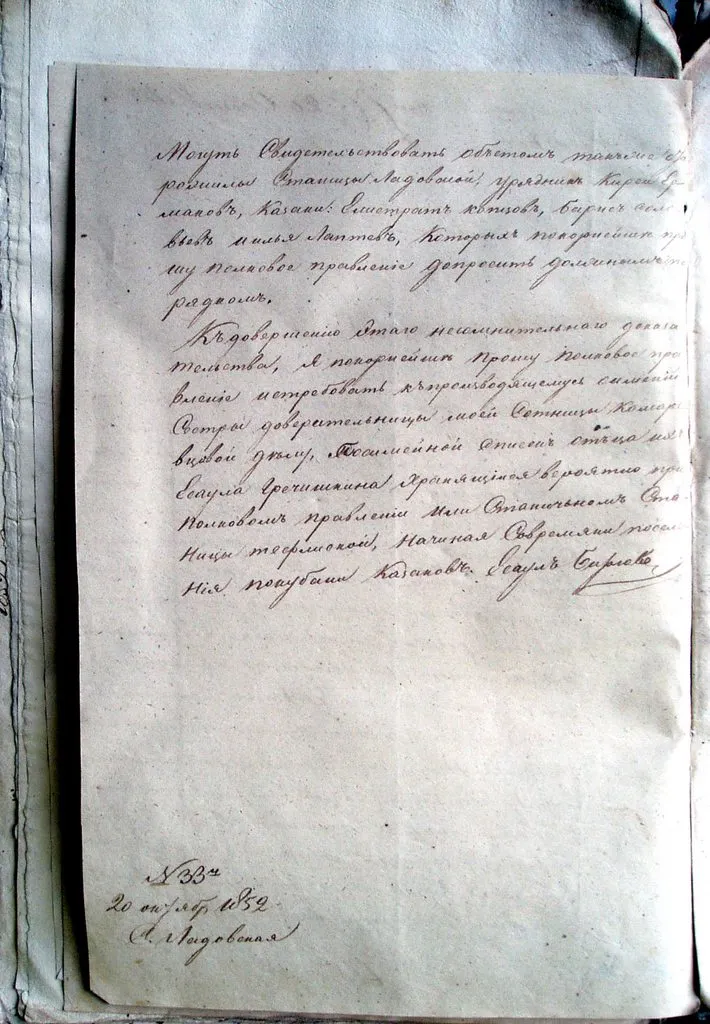 Могутъ Свидетельствовать обетомъ такъже ста
рожилы Станицы Ладовской, урядникъ Кирей Ер
маковъ, Казаки: Елистратъ копцовъ, Борисъ соло
вьевъ и илья Лаптевъ, Которыхъ покорнейши про
шу полковое правленіе допросить должнымъ по
рядкомъ.
Къ довершенію Этаго несомнительнаго доказа
тельства, Я покорнейши прошу полковое пра
вленіе истребовать къ производящемусь о именіи
Сестры доверительницы моей Сотницы Комаро
вцовой дѣлу, Посимейной списокъ отъца ихъ
Есаула Гречишкина Хранящійся вероятно при
Полковомъ правленіи или Станичномъ Ста-
ницы тефлиской, начиная Совремяни поселе
нія покубани Казаковъ. Есаулъ
N 33й
20 октября 1852
С. Ладовская